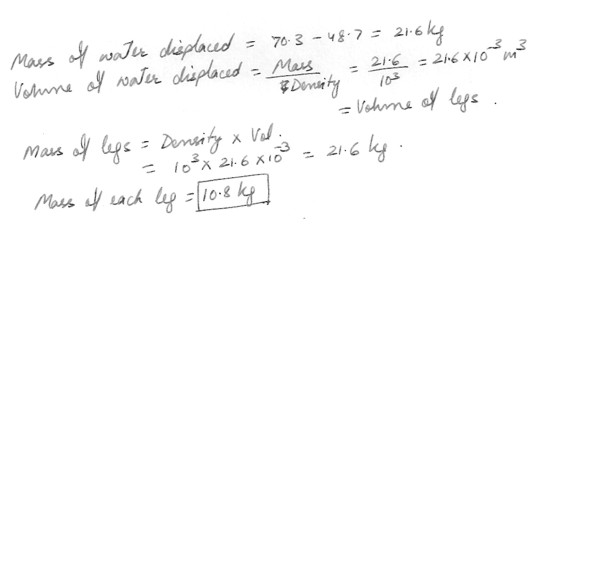 Mass of water displaced = 70.3 - 48.7 = 21.6 kg
Volume of water displaced = Mass / Density = 21.6 / 10³ = 21.6 x 10⁻³ m³
= Volume of legs .
Mass of legs = Density x Vol.
= 10³ x 21.6 x 10⁻³ = 21.6 kg .
Mass of each leg = 10.8 kg